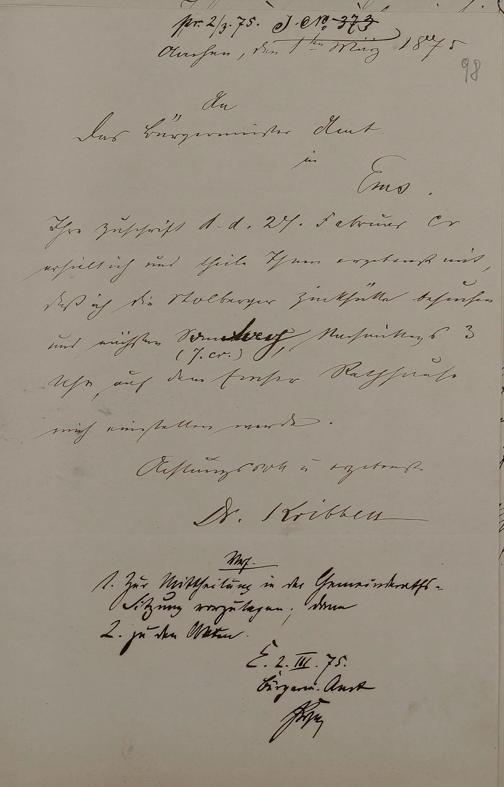 pr. 2/3. 75. J. No. 373
Aachen, den 1ten März 1875
98
An
Das Bürgermeister Amt
in
Ems.
Ihre Zuschrift d. d. 27. Februar cr
erhielt ich und theile Ihnen ergebenst mit,
daß ich die Stolberger Zinkhütte besuchen
und nächsten Sonntag, Nachmittags 3
(7. cr.)
Uhr, auf dem Emser Rathhause
mich einstellen werde.
Achtungsvoll u ergebenst
Dr. Kribben
Verf.
1. Zur Mittheilung in der Gemeinderaths-
Sitzung vorzulegen; dann
2. zu den Akten.
E. 2. III. 75.
Bürgerm. Amt